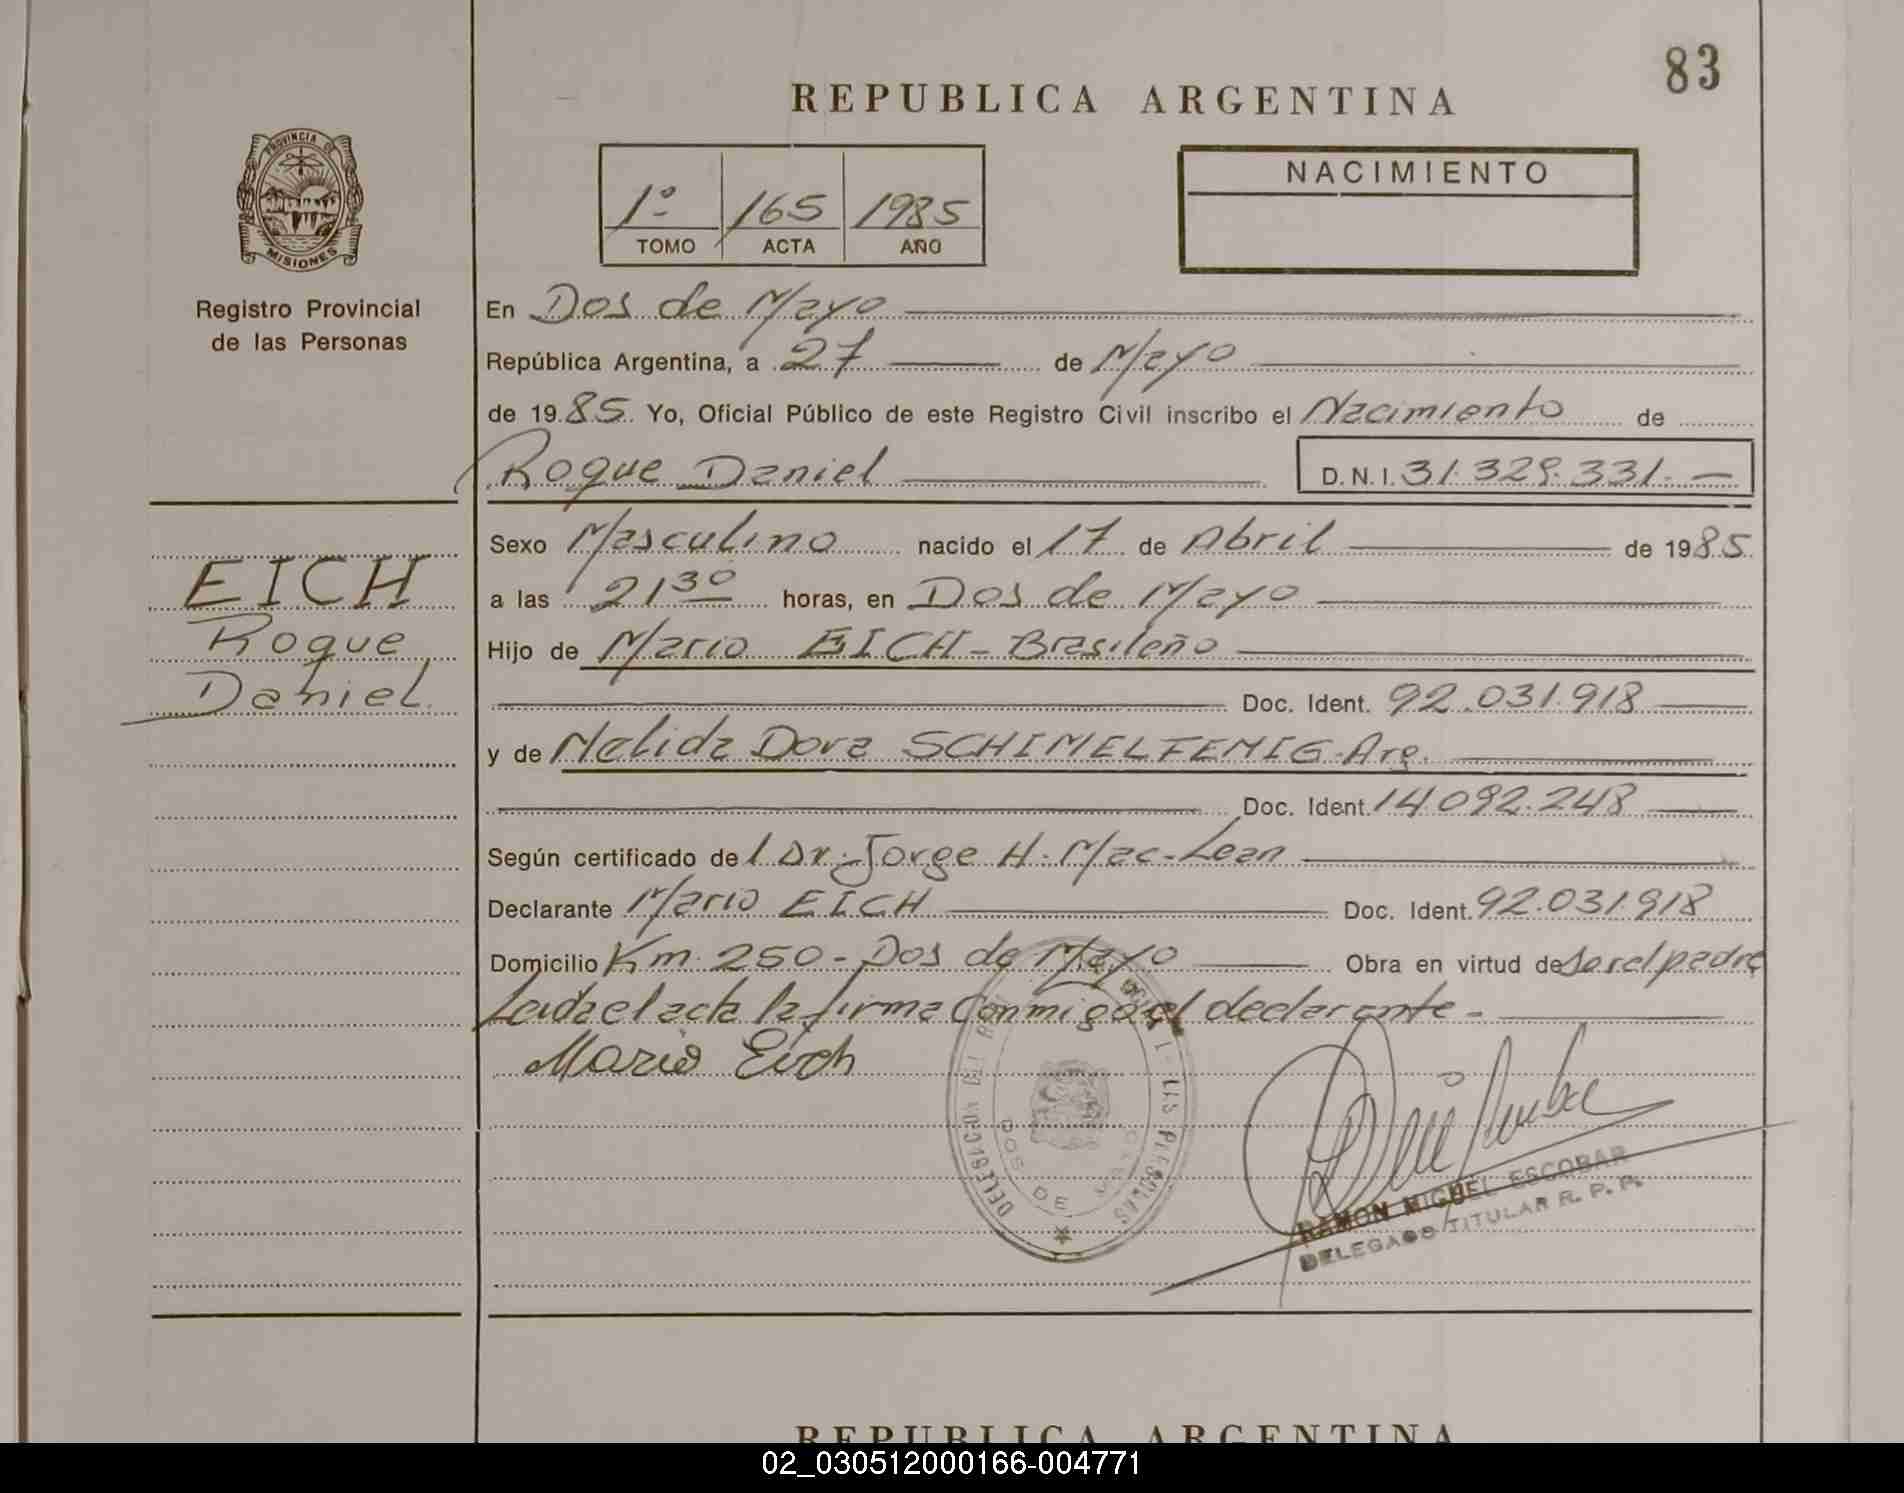 83
REPUBLICA ARGENTINA
PROVINCIA DE
MISIONES
Registro Provincial
de las Personas
1º 165 1985
TOMO ACTA AÑO
NACIMIENTO
En Dos de Mayo
República Argentina, a 27 de Mayo
de 1985 Yo, Oficial Público de este Registro Civil inscribo el Nacimiento de
Roque Daniel D.N.I. 31.329.331.-
EICH
Roque
Daniel
Sexo Masculino nacido el 17 de Abril de 1985
a las 21 30 horas, en Dos de Mayo
Hijo de Mario EICH - Brasileño
Doc. Ident. 92.031.918
y de Nelida Dora SCHIMELFENIG-Arg.
Doc. Ident. 14.092.248
Según certificado del Dr. Jorge H. Mac-Lean
Declarante Mario EICH Doc. Ident. 92.031.918
Domicilio Km. 250 - Dos de Mayo Obra en virtud de ser el padre
Leída el acta la firma conmigo el declarante -
Mario Eich
DOS DE
RAMON MIGUEL ESCOBAR
DELEGADO TITULAR R. P. P.
REPUBLICA ARGENTINA
02_030512000166-004771